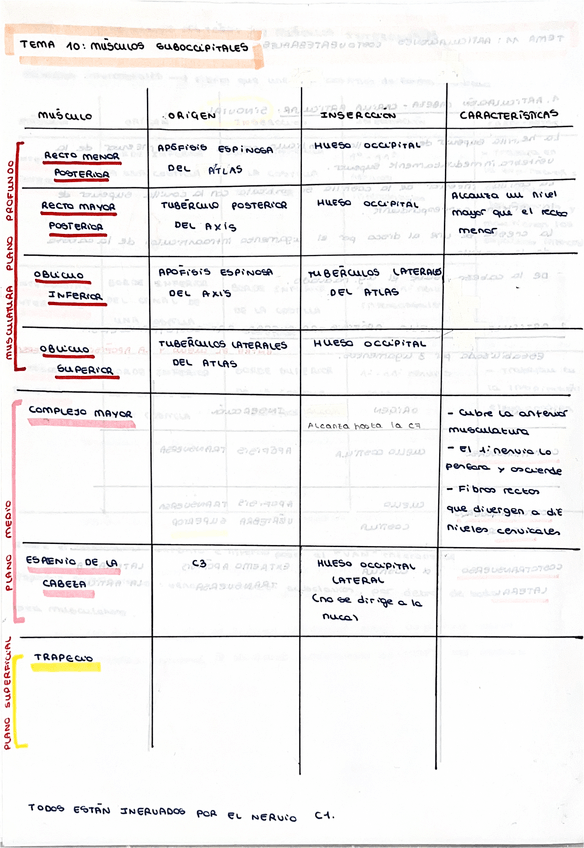 TEMA 10: MÚSCULOS SUBOCCIPITALES
MÚSCULO ORIGEN INSERCCIÓN CARACTERÍSTICAS
MUSCULATURA PLANO PROFUNDO
RECTO MENOR POSTERIOR
APÓFISIS ESPINOSA
DEL ATLAS
HUESO OCCIPITAL
RECTO MAYOR
POSTERIOR
TUBÉRCULO POSTERIOR
DEL AXIS
HUESO OCCIPITAL
Alcanza un nivel
mayor que el recto
menor
OBLICUO
INFERIOR
APÓFISIS ESPINOSA
DEL AXIS
TUBÉRCULOS LATERALES
DEL ATLAS
OBLICUO
SUPERIOR
TUBÉRCULOS LATERALES
DEL ATLAS
HUESO OCCIPITAL
PLANO MEDIO
COMPLEJO MAYOR
Alcanza hasta la C7
- Cubre la anterior
musculatura
- El 2º nervio lo
perfora y asciende
- Fibras rectas
que divergen a dif
niveles cervicales
ESPLENIO DE LA
CABEZA
C3
HUESO OCCIPITAL
LATERAL
(no se dirige a la
nuca)
PLANO SUPERFICIAL
TRAPECIO
TODOS ESTÁN INERVADOS POR EL NERVIO C1.